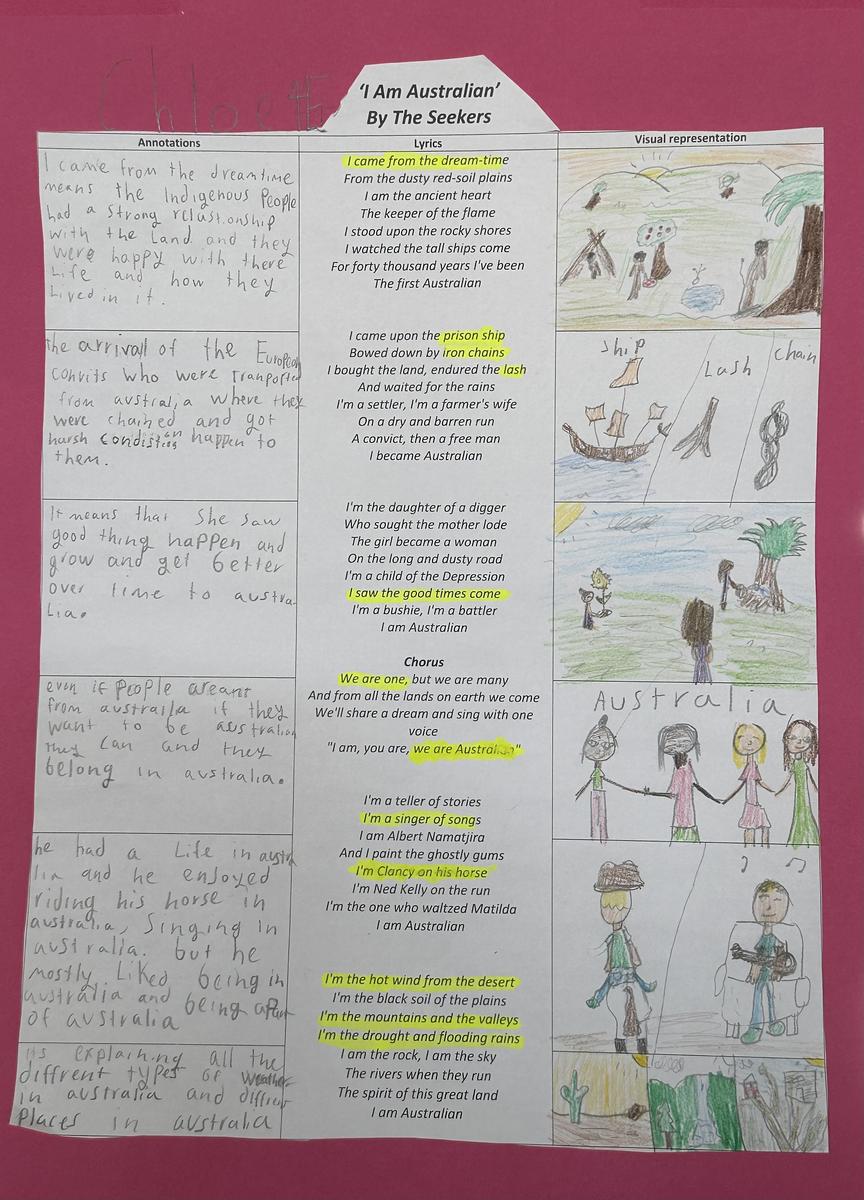 Chloe 4F
'I Am Australian'
By The Seekers
Annotations
Lyrics
Visual representation
I came from the dreamtime
means the Indigenous People
had a strong relastionship
with the Land and they
were happy with there
Life and how they
Lived in it.
I came from the dream-time
From the dusty red-soil plains
I am the ancient heart
The keeper of the flame
I stood upon the rocky shores
I watched the tall ships come
For forty thousand years I've been
The first Australian
the arrival of the European
convits who were Tranported
from australia where they
were chained and got
harsh condistion happen to
them.
I came upon the prison ship
Bowed down by iron chains
I bought the land, endured the lash
And waited for the rains
I'm a settler, I'm a farmer's wife
On a dry and barren run
A convict, then a free man
I became Australian
Ship
Lash
Chain
It means that She saw
good thing happen and
grow and get better
over time to austra
Lia.
I'm the daughter of a digger
Who sought the mother lode
The girl became a woman
On the long and dusty road
I'm a child of the Depression
I saw the good times come
I'm a bushie, I'm a battler
I am Australian
even if People areant
from austrailia if they
want to be australian
they can and they
belong in australia.
Chorus
We are one, but we are many
And from all the lands on earth we come
We'll share a dream and sing with one
voice
"I am, you are, we are Australian"
Australia
he had a Life in austra
lia and he enjoyed
riding his horse in
australia, Singing in
australia. but he
mostly Liked being in
australia and being apart
of australia
I'm a teller of stories
I'm a singer of songs
I am Albert Namatjira
And I paint the ghostly gums
I'm Clancy on his horse
I'm Ned Kelly on the run
I'm the one who waltzed Matilda
I am Australian
its explaining all the
diffrent types of weather
in australia and
Places in australia
I'm the hot wind from the desert
I'm the black soil of the plains
I'm the mountains and the valleys
I'm the drought and flooding rains
I am the rock, I am the sky
The rivers when they run
The spirit of this great land
I am Australian